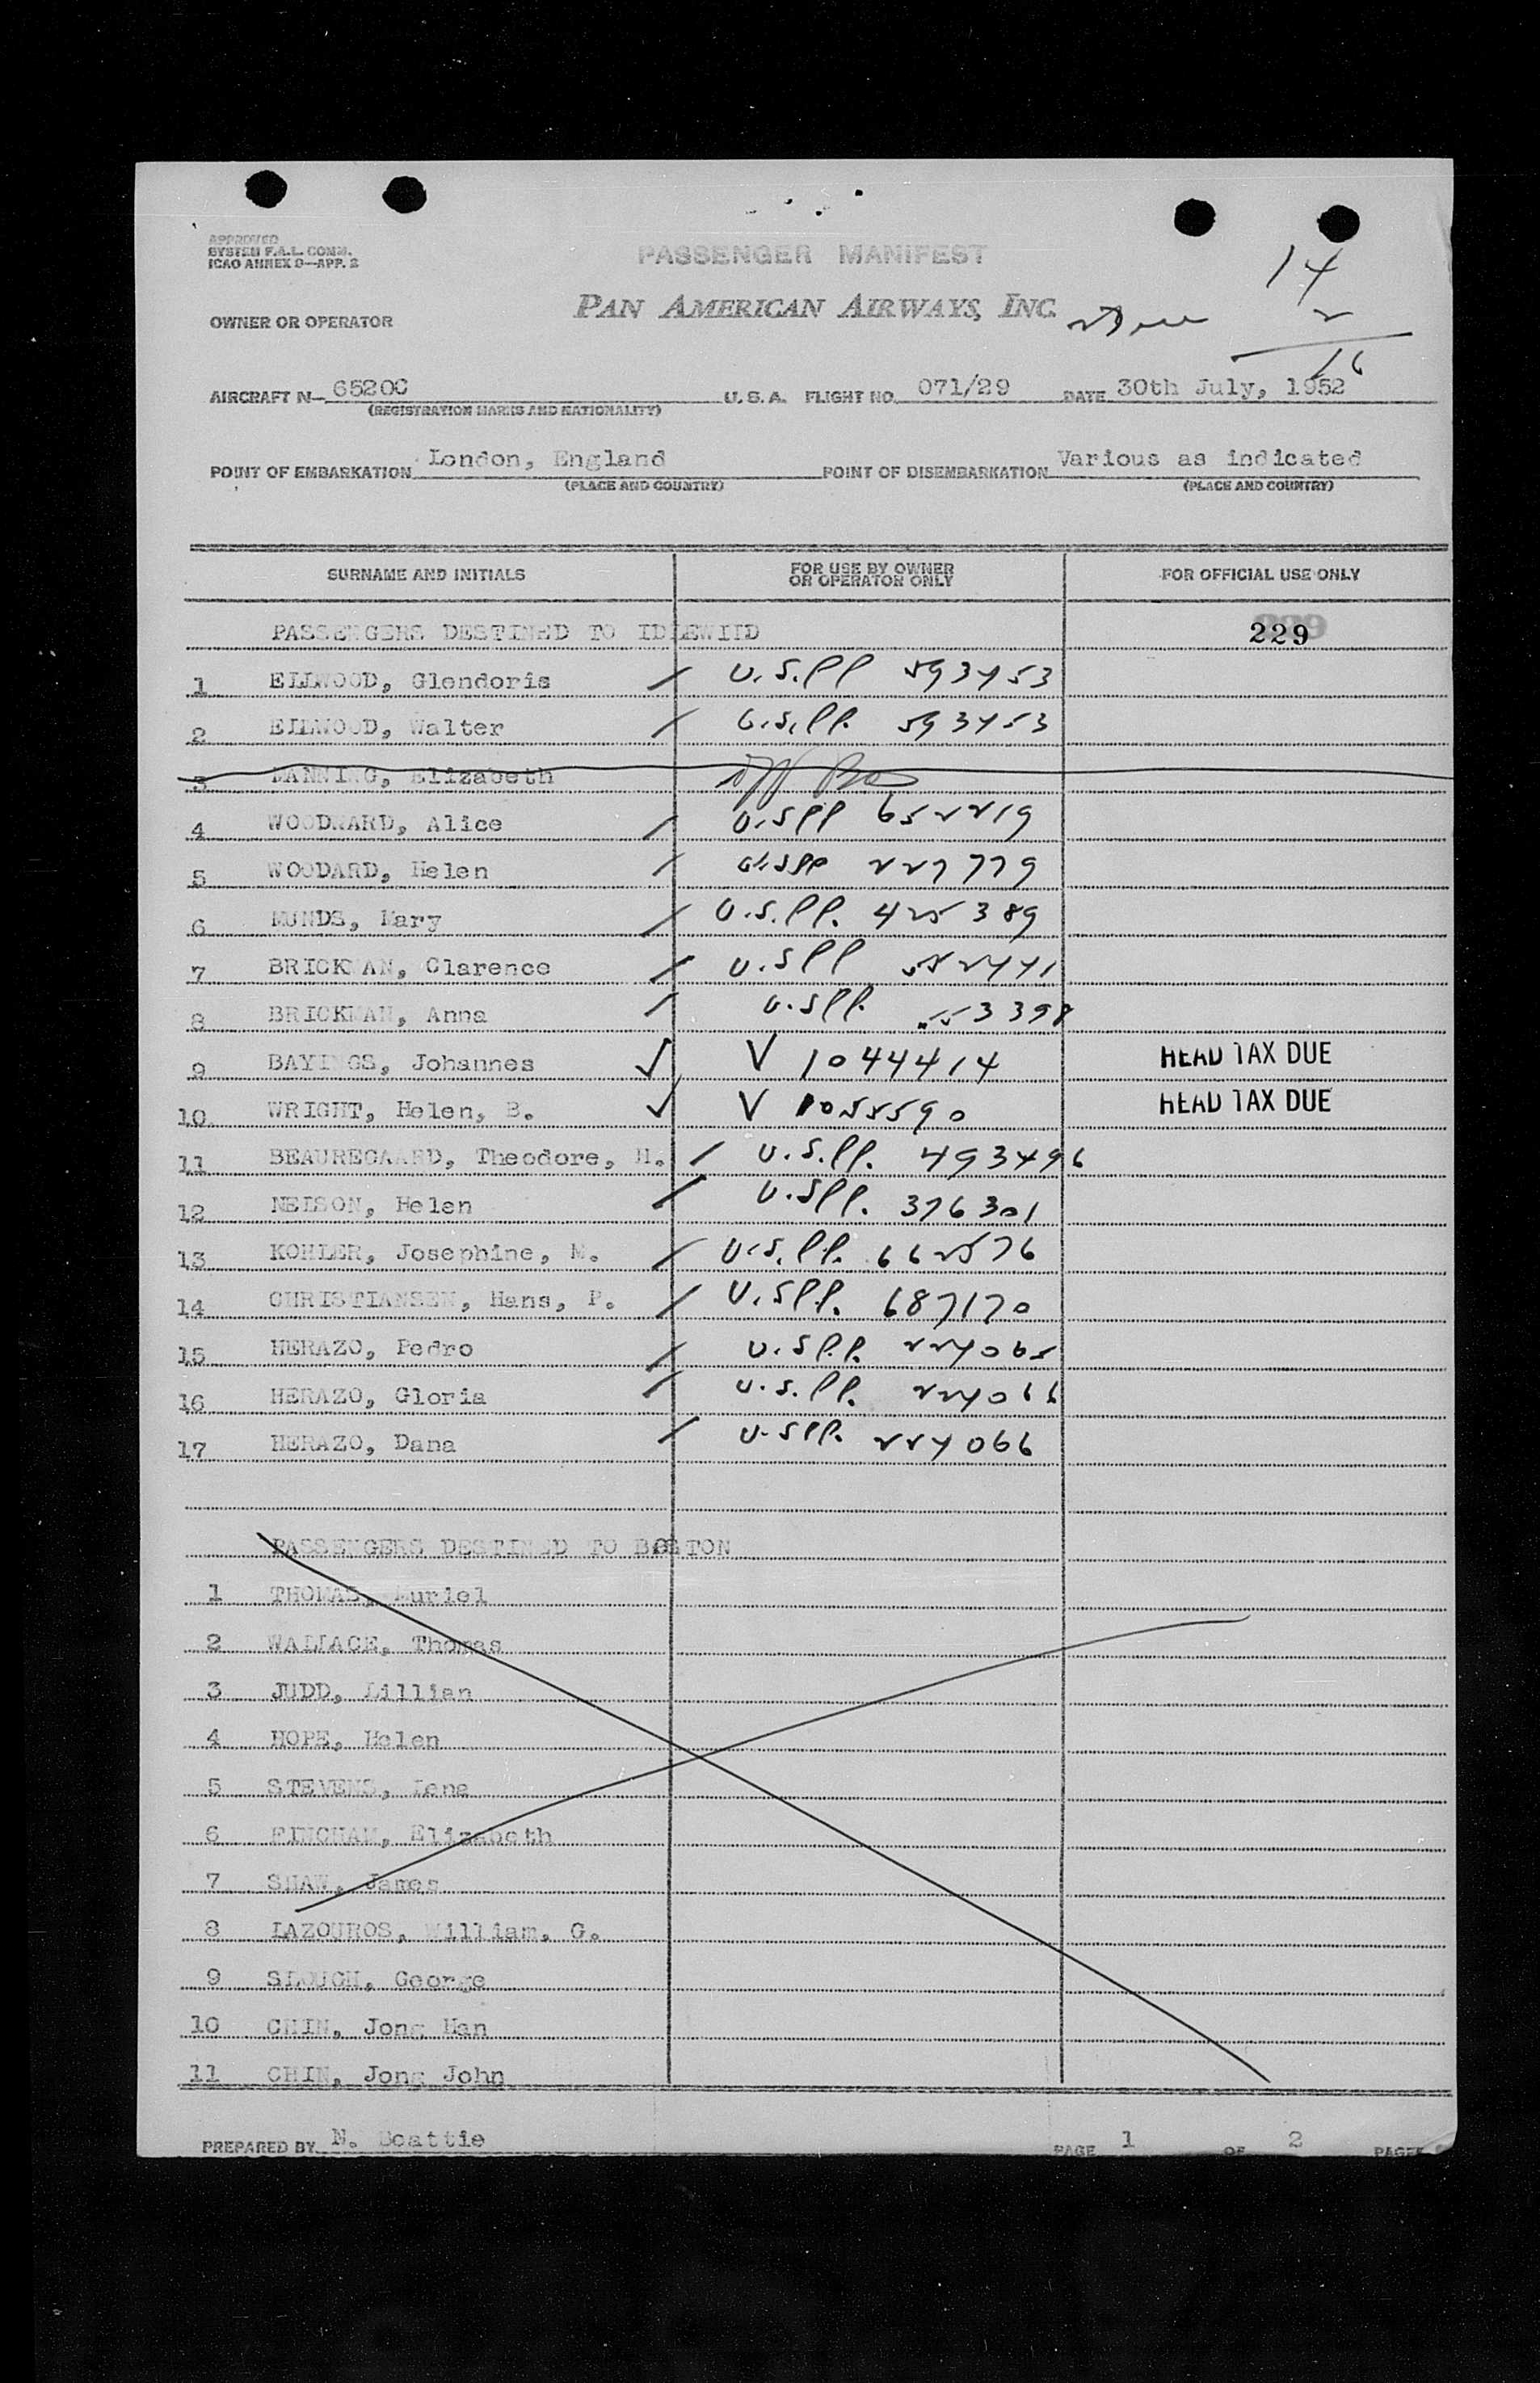 APPROVED
SYSTEM F.A.L. COMM.
ICAO ANNEX 9—APP. 2
PASSENGER MANIFEST
14
OWNER OR OPERATOR PAN AMERICAN AIRWAYS, INC.
2
16
AIRCRAFT N— 6520C U.S.A. FLIGHT NO. 071/29 DATE 30th July, 1952
(REGISTRATION MARKS AND NATIONALITY)
POINT OF EMBARKATION London, England POINT OF DISEMBARKATION Various as indicated
(PLACE AND COUNTRY) (PLACE AND COUNTRY)
SURNAME AND INITIALS FOR USE BY OWNER OR OPERATOR ONLY FOR OFFICIAL USE ONLY
PASSENGERS DESTINED TO IDLEWILD 229
1 ELLWOOD, Glendoris / U.S.PP 593453
2 ELLWOOD, Walter / U.S.PP. 593453
3 MANNING, Elizabeth
4 WOODWARD, Alice / U.SPP 652219
5 WOODARD, Helen / U.SPP 227779
6 MUNDS, Mary / U.S.PP. 425389
7 BRICKMAN, Clarence / U.SPP
8 BRICKMAN, Anna / U.SPP.
9 BAYINGS, Johannes ✓ V 1044414 HEAD TAX DUE
10 WRIGHT, Helen, B. ✓ V 1055590 HEAD TAX DUE
11 BEAUREGAARD, Theodore, H. / U.S.PP. 493496
12 NELSON, Helen / U.SPP. 376301
13 KOHLER, Josephine, M. / U.S.PP. 662576
14 CHRISTIANSEN, Hans, P. / U.SPP. 687170
15 HERAZO, Pedro / U.SPP. 224065
16 HERAZO, Gloria / U.S.PP. 224066
17 HERAZO, Dana / U.SPP. 224066
PASSENGERS DESTINED TO BOSTON
1 THOMAS, Muriel
2 WALLACE, Thomas
3 JUDD, Lillian
4 HOPE, Helen
5 STEVENS, Lena
6 FINCHAM, Elizabeth
7 SHAW, James
8 LAZOUROS, William, G.
9 SLOUGH, George
10 CHIN, Jong Han
11 CHIN, Jong John
PREPARED BY N. Beattie PAGE 1 OF 2 PAGES